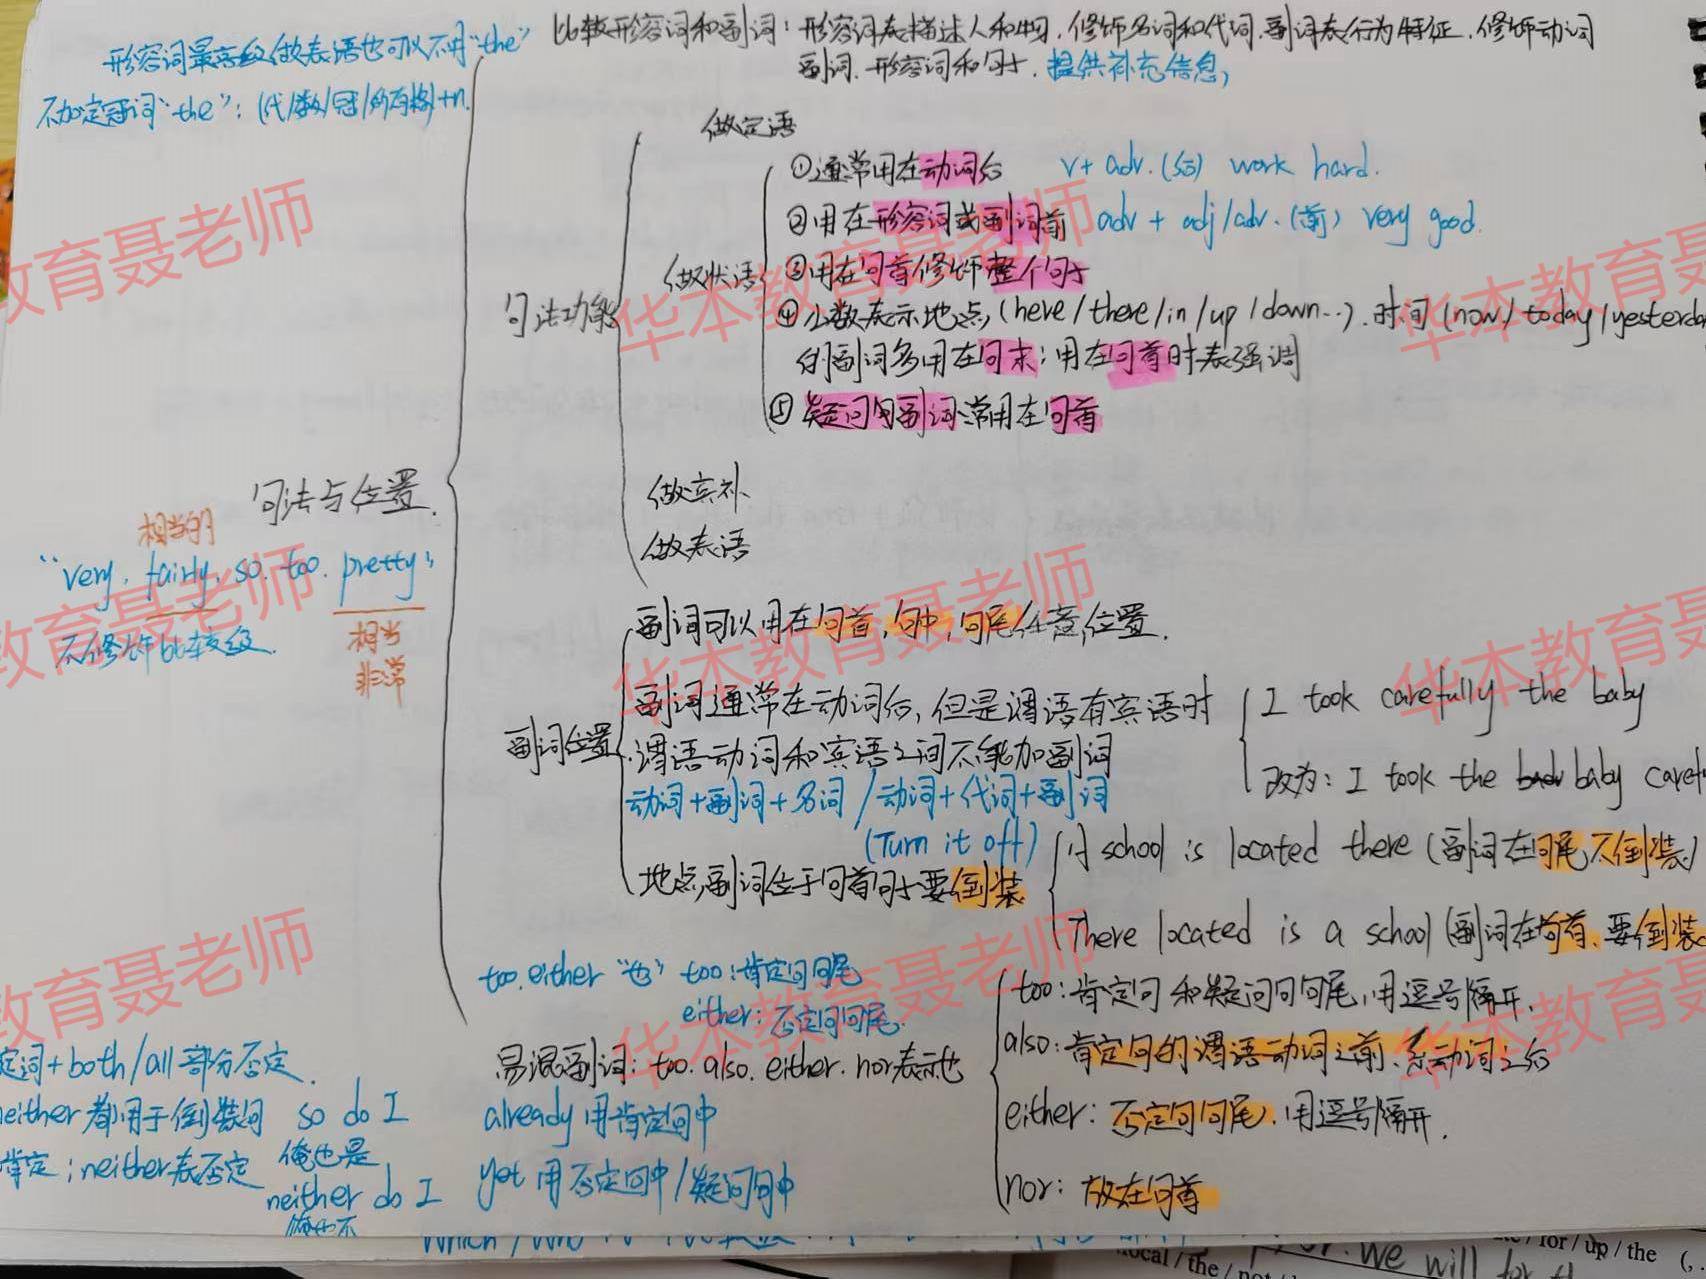 形容词最高级做表语也可以不用"the"
不加定冠词"the"：(代/数/冠/所有格)+n.
比较形容词和副词：形容词表描述人和物，修饰名词和代词，副词表行为特征，修饰动词
副词、形容词和句子，提供补充信息，
句法与位置.
句法功能
做定语
做状语
①通常用在动词后 v+ adv.(后) work hard.
②用在形容词或副词前 adv + adj/adv.(前) very good.
③用在句首修饰整个句子
④少数表示地点(here/there/in/up/down…)，时间(now/today/yesterda
的副词多用在句末；用在句首时表强调
⑤疑问句副词常用在句首
做宾补
做表语
相当的
"very, fairly, so, too, pretty"
不修饰比较级.
相当
非常
副词位置
副词可以用在句首，句中，句尾任意位置.
副词通常在动词后，但是谓语有宾语时
谓语动词和宾语之间不能加副词
I took carefully the baby
改为：I took the baby caref
动词+副词+名词/动词+代词+副词
(Turn it off)
地点副词位于句首句子要倒装
A school is located there (副词在句尾不倒装)
There located is a school (副词在句首，要倒装
too. either "也" too：肯定句句尾
either：否定句句尾.
易混副词：too. also. either. nor表示也
too：肯定句和疑问句句尾，用逗号隔开.
also：肯定句的谓语动词之前、系动词之后
either：否定句句尾，用逗号隔开.
nor：放在句首
already 用肯定句中
yet 用否定句中/疑问句中
定词+both/all 部分否定.
neither 都用于倒装句 so do I
俺也是
肯定；neither表否定
neither do I
俺也不
华本教育聂老师
教育聂老师
华本教育聂老师
华本教育聂老师
教育聂老师
华本教育聂
教育聂老师
华本教育聂老师
华本教育聂
for / up / the
ocal / the
we will for th